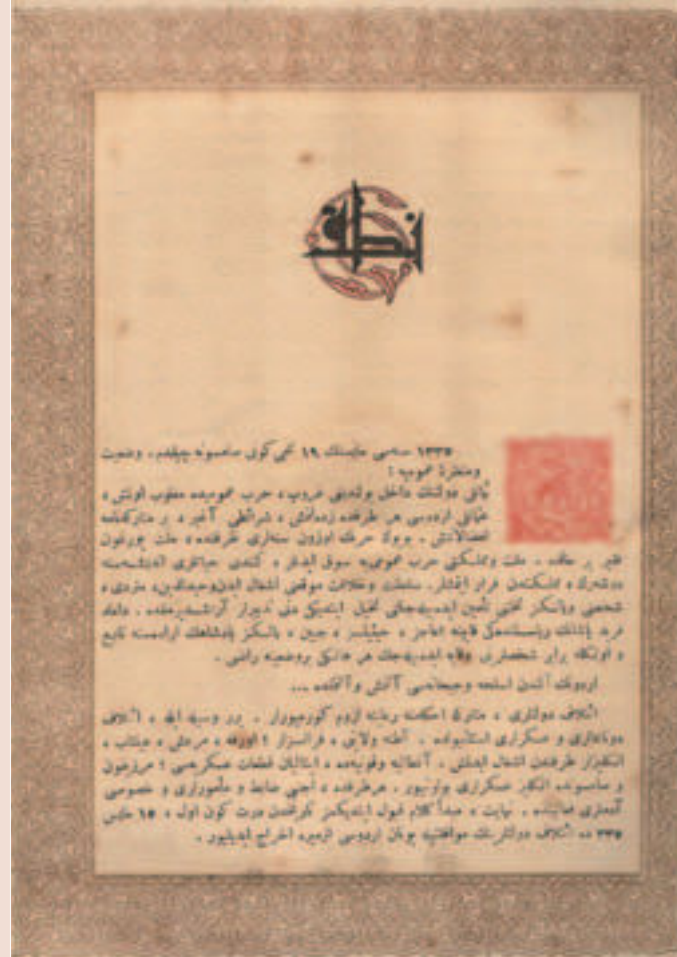 نطق
١٣٣٥ سنه‌سی مایسنك ١٩ نجی كونی صامسونه چیقدم. وضعیت
ومنظرهٔ عمومیه :
دولتنك داخل بولندیغی غروپ، حرب عمومیده مغلوب اولمش،
عثمانلی اردوسی هر طرفده زده‌لنمش، شرائطی آغیر، بر متاركه‌نامه
امضالانمش. بویوك حربك اوزون سنه‌لری ظرفنده، ملت یورغون
فقیر بر حالده. ملت ومملكتی حرب عمومی‌یه سوق ایدنلر، كندی حیاتلری اندیشه‌سنه
دوشه‌رك، مملكتدن فرار ایتمشلر. سلطنت وخلافت موقعنی اشغال ایدن وحیدالدین، متردی،
شخصنی ویالكز تختنی تأمین ایده‌بیله‌جكنی تخیل ایتدیكی دنی تدبیرلر آراشدیرمقده. داماد
فرید پاشانك ریاستنده‌كی قابینه؛ عاجز، حیثیتسز، جبین، یالكز پادشاهك اراده‌سنه تابع
و اونكله برابر شخصلرینی وقایه ایده‌بیله‌جك هر هانكی بر وضعیته راضی.
اردونك الندن اسلحه وجبخانه‌سی آلنمش وآلنمقده...
ائتلاف دولتلری، متاركه احكامنه رعایته لزوم كورمیورلر. برر وسیله ایله، ائتلاف
دونانمالری و عسكرلری استانبولده. آطنه ولایتی، فرانسزلر؛ اورفه، مرعش، عینتاب،
انكلیزلر طرفندن اشغال ایدلمش. آنطالیه وقونیه‌ده، ایتالیان قطعات عسكریه‌سی؛ مرزیفون
و صامسونده انكلیز عسكرلری بولونیور. هر طرفده، اجنبی ضابط و مأمورلری و خصوصی
آدملری فعالیتده. نهایت، مبدأ كلام قبول ایتدیكمز تاریخدن درت كون اول، ١٥ مایس
٣٣٥ ده ائتلاف دولتلرینك موافقتیله یونان اردوسی ازمیره اخراج ایدیلیور.